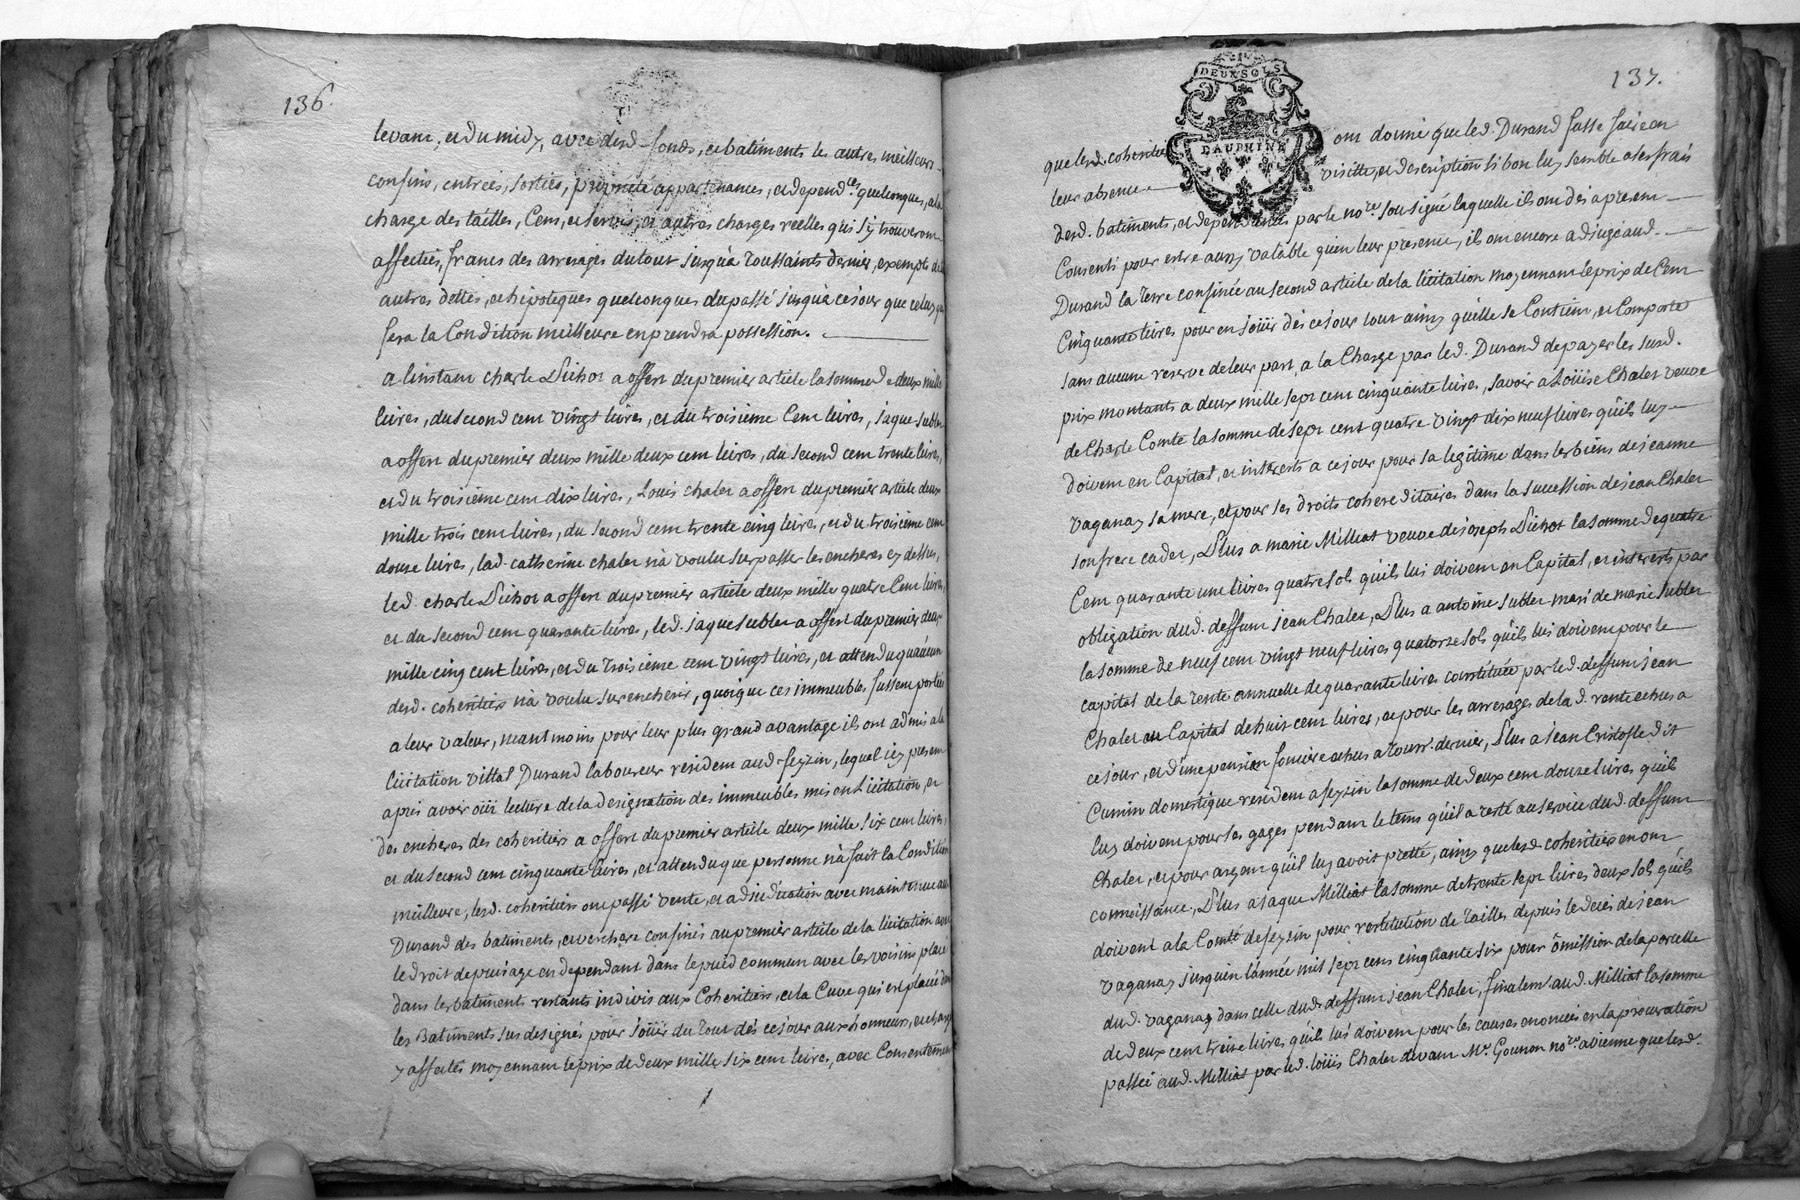 136.
levant, et du midy, avec desd. fonds, et batiments les autres meilleurs
confins, entrées, sorties, proprieté appartenances, et depend.ces quelconques, a la
charge des tailles, Cens, et servis, et autres charges réelles qui s'y trouveront
affectiés, francs des arrerages du tout jusqu'a toussaints dernier, exempts de
autres dettes, et hipoteques quelconques du passé jusqu'a ce jour que celuy qui
fera la Condition meilleure en prendra possession.
a l'instant charle Pichot a offert du premier article la somme de deux mille
livres, du second cent vingt livres, et du troisieme Cent livres, jaque Sublet
a offert du premier deux mille deux cent livres, du second cent trente livres,
et du troisieme cent dix livres, Louis chalet a offert du premier article deux
mille trois cent livres, du second cent trente cinq livres, et du troisieme cent
douse livres, lad. catherine chalet n'a voulu surpasser les encheres cy dessus,
led. charle Pichot a offert du premier article deux mille quatre Cent livres,
et du second cent quarante livres, led. jaque sublet a offert du premier deux
mille cinq cent livres, et du troisieme cent vingt livres, et attendu qu'aucun
desd. cohéritiers n'a voulu surencherir, quoique ces immeubles fussent portés
a leur valeur, neantmoins pour leur plus grand avantage ils ont admis a la
licitation vittal Durand laboureur résident aud. feyzin, lequel icy present
après avoir oüi lecture de la designation des immeubles mis en Licitation, et
des encheres des coheritiers a offert du premier article deux mille six cent livres,
et du second cent cinquante livres, et attendu que personne n'a fait la Condition
meilleure, lesd. coheritiers ont passé vente, et adjudication avec maintenue aud.
Durand des batiments, et verchere confinés au premier article de la licitation avec
le droit de puisage en dependant dans le puid commun avec les voisins placé
dans les batiments restants indivis aux Coheritiers, et la Cuve qui est placée dans
les Batiments sus designés pour joüir du tout dés ce jour aux honneurs, et charges
y affectés moyennant le prix de deux mille six cent livres, avec Consentement
137.
DEUX SOLS
DAUPHINÉ
que lesd. coheritiers ont donné que led. Durand fasse faire en
leur absence visitte, et description si bon luy semble a ses frais
desd. batiments, et dependances par le no.re sousigné laquelle ils ont dés a present
Consenti pour estre aussy valable qu'en leur presence, ils ont encore adjugé aud.
Durand la Terre confinée au second article de la licitation moyennant le prix de Cent
Cinquante livres pour en joüir dés ce jour tout ainsy qu'elle se Contient, et Comporte
sans aucune reserve de leur part, a la Charge par led. Durand de payer les susd.
prix montants a deux mille sept cent cinquante livres, savoir a Loüise Chalet veuve
de Charle Comte la somme de sept cent quatre vingt dix neuf livres qu'ils luy
doivent en Capital, et interets a ce jour pour sa légitime dans les biens de jeanne
vaganay sa mere, et pour ses droits cohereditaires dans la succession de jean Chalet
son frere cadet, Plus a marie Milliat veuve de joseph Pichot la somme de quatre
Cent quarante une livres quatre sols qu'ils lui doivent en Capital, et interets par
obligation dud. deffunt jean Chalet, Plus a antoine Sublet mari de marie Sublet
la somme de neuf cent vingt neuf livres quatorze sols qu'ils lui doivent pour le
capital de la rente annuelle de quarante livres constituée par led. deffunt jean
Chalet au Capital de huit cent livres, et pour les arrerages de lad. rente echus a
ce jour, et d'une pension fonciere echus a touss.ts dernier, Plus a jean Cristofle dit
Cumin domestique resident a feyzin la somme de deux cent douze livres qu'ils
luy doivent pour ses gages pendant le tems qu'il a resté au service dud. deffunt
Chalet, et pour argent qu'il luy avoit pretté, ainsy que lesd. cohéritiers en ont
connoissance, Plus a jaque Milliat la somme de trente sept livres deux sols qu'ils
doivent a la Comté de feyzin pour restitution de Tailles depuis le decés de jean
vaganay jusqu'en l'année mil sept cens cinquante six pour omission de la parcelle
dud. vaganay dans celle dud. deffunt jean Chalet, finalem.t aud. Milliat la somme
de deux cent treise livres qu'ils lui doivent pour les causes enoncées en la procuration
passée aud. Milliat par led. loüis Chalet devant M.e Gounon no.re a vienne que lesd.